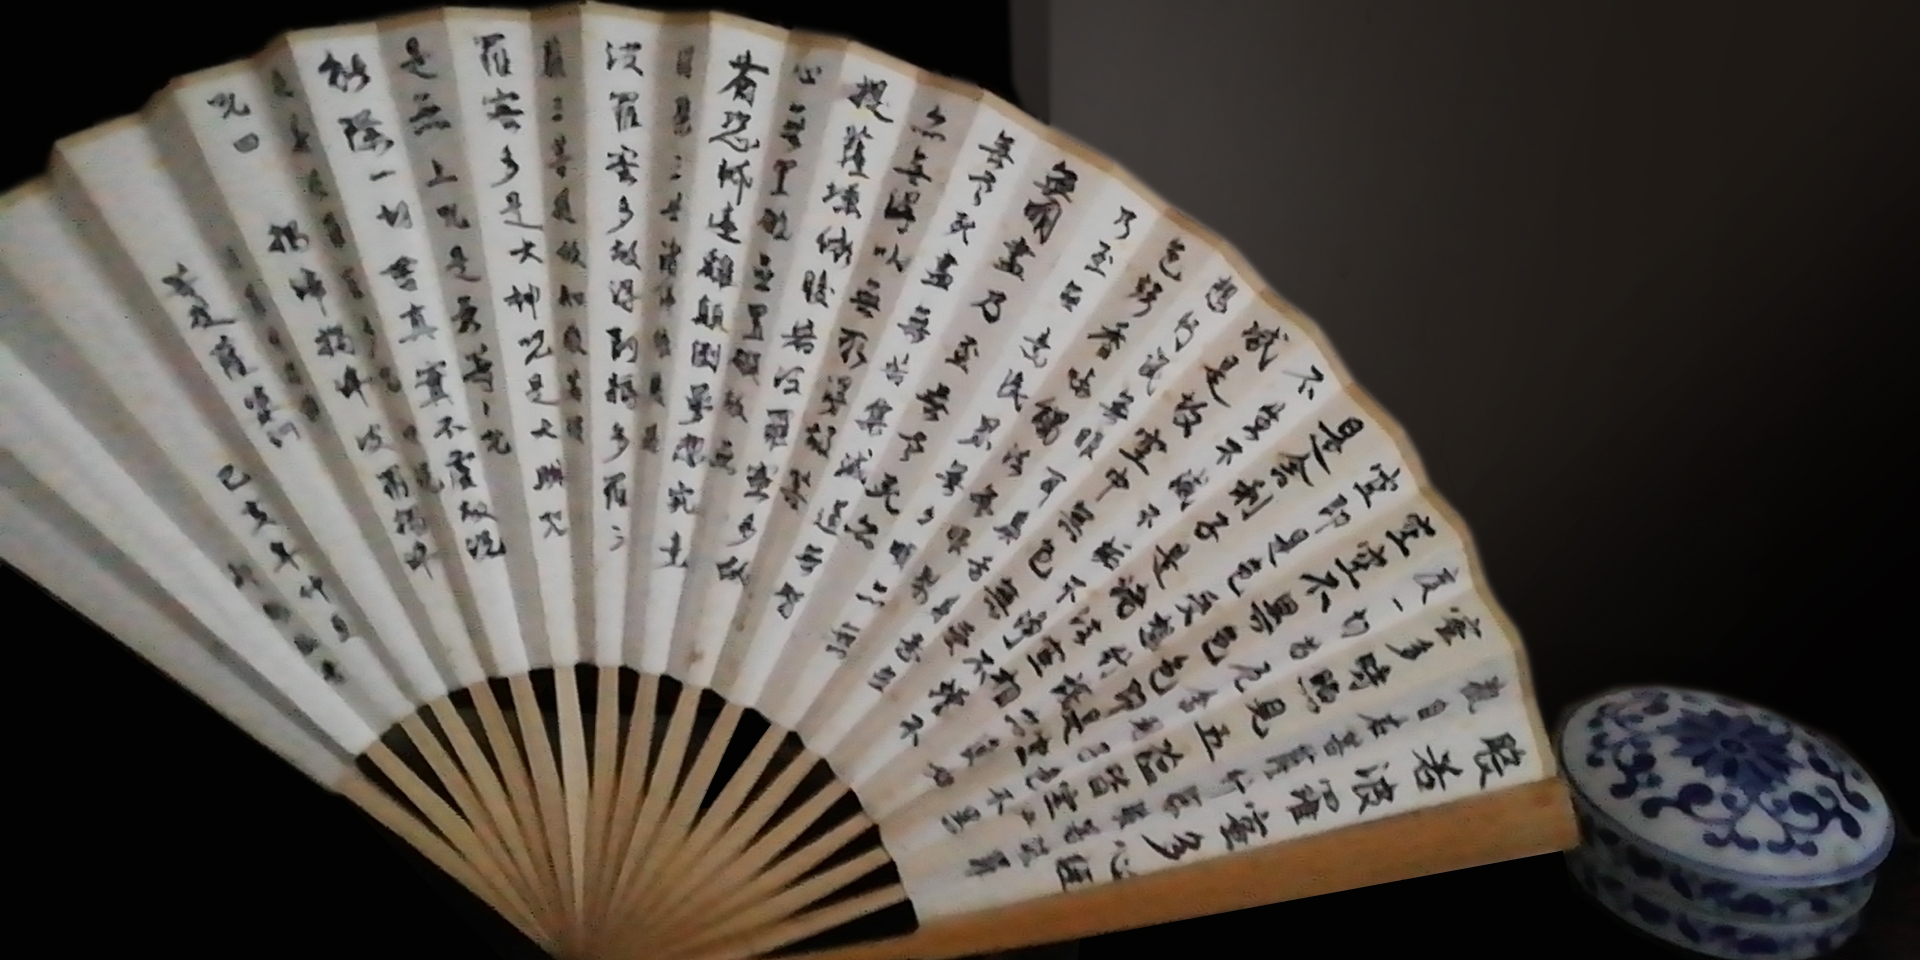 般若波羅蜜多心經
觀自在菩薩行深般若波羅
蜜多時照見五蘊皆空
度一切苦厄舍利子色不異
空空不異色色即是空
空即是色受想行識亦
是舍利子是諸法空相
不生不滅不垢不淨不增不
減是故空中無色無受
想行識無眼耳鼻舌身意無
色聲香味觸法無眼界
乃至無意識界無無明亦
無無明盡乃至無老死亦
無老死盡無苦集滅道
亦無得以無所得故菩
提薩埵依般若波羅蜜多故
心無罣礙無罣礙故無
有恐怖遠離顛倒夢想究竟
涅槃三世諸佛依般若
波羅蜜多故得阿耨多羅三
藐三菩提故知般若波
羅蜜多是大神咒是大明咒
是無上咒是無等等咒
能除一切苦真實不虛故說
般若波羅蜜多咒即說
咒曰 揭諦揭諦波羅揭諦
波羅僧揭諦
菩提薩婆訶
己亥年